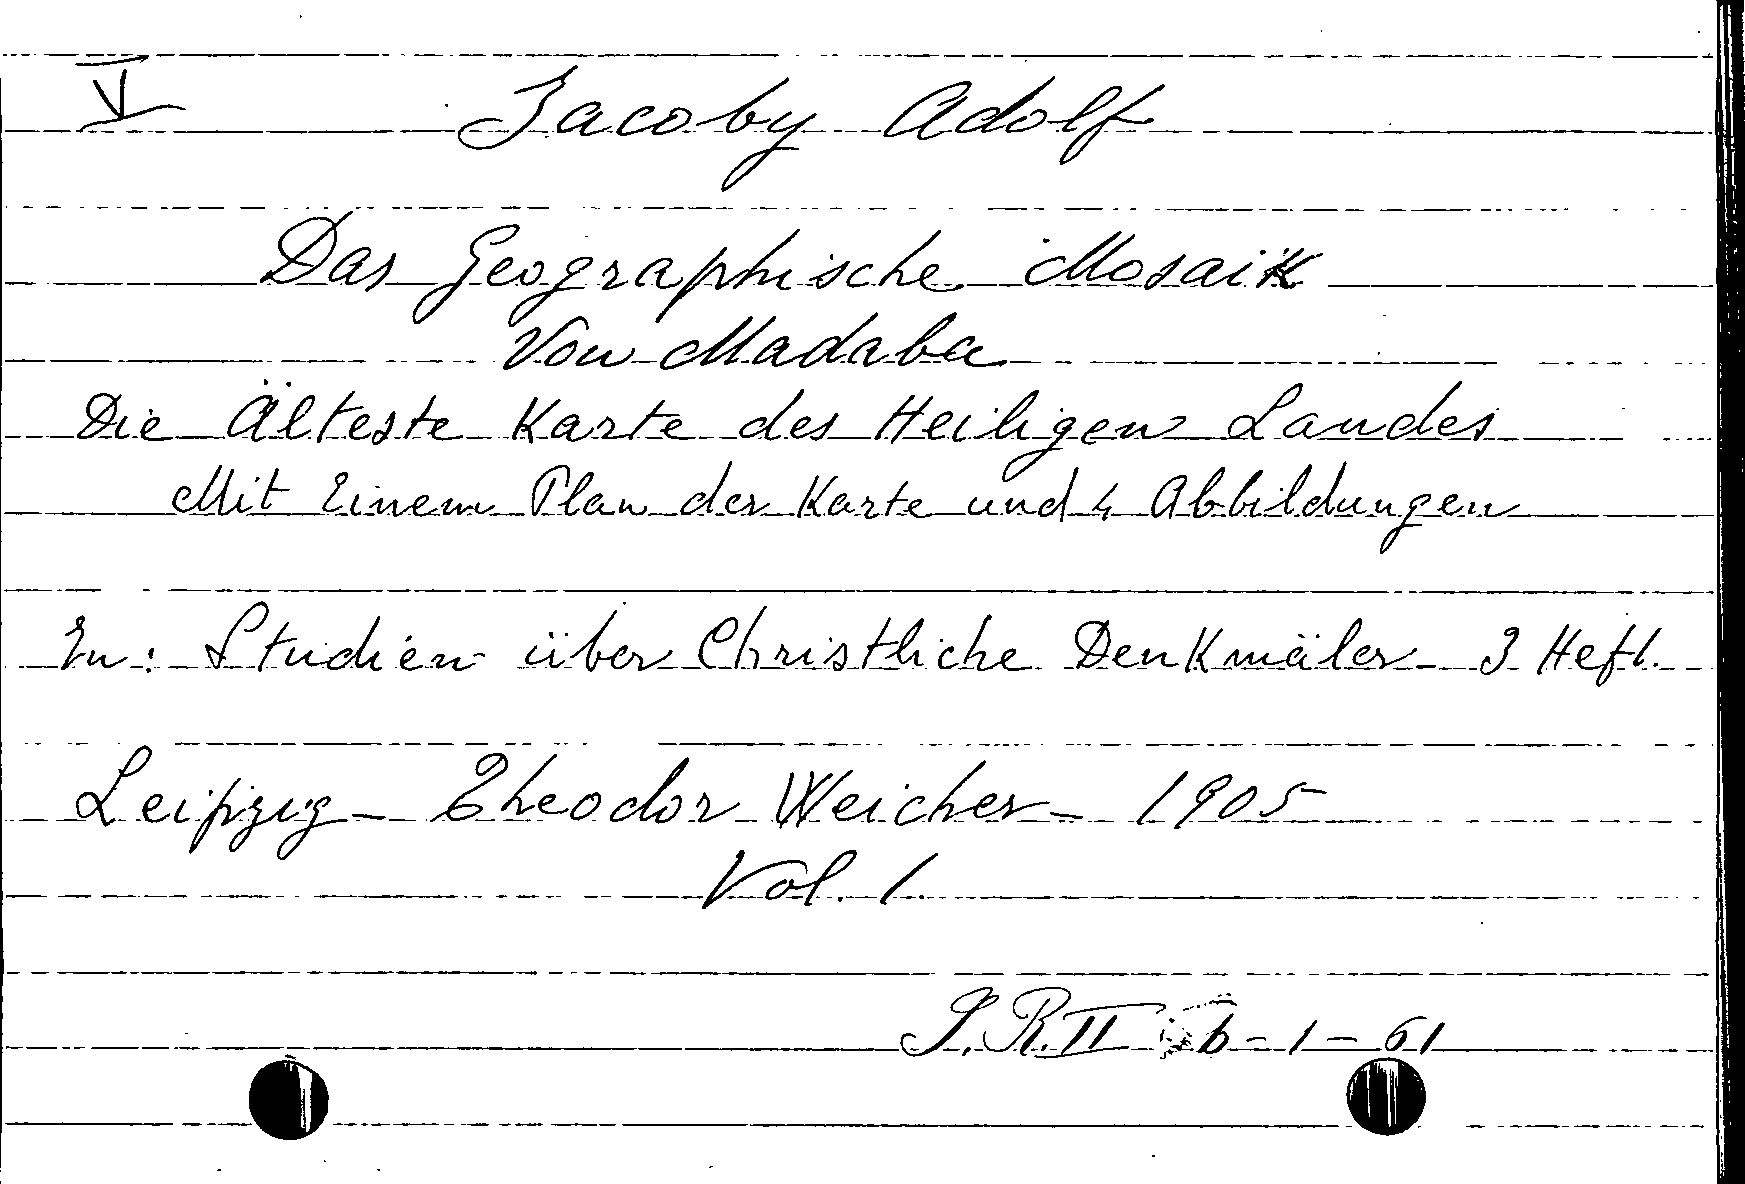 V Jacoby Adolf
Das Geographische Mosaik
Von Madaba
Die Älteste Karte des Heiligen Landes
Mit Einem Plan der Karte und 4 Abbildungen
In: Studien über Christliche Denkmäler - 3 Heft.
Leipzig - Theodor Weicher - 1905
Vol. 1
S.R. II b - 1 - 61